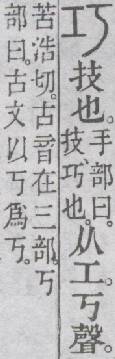 巧技也。手部曰。技、巧也。从工。丂聲。
苦浩切。古音在三部。丂
部曰。古文以丂爲丂。